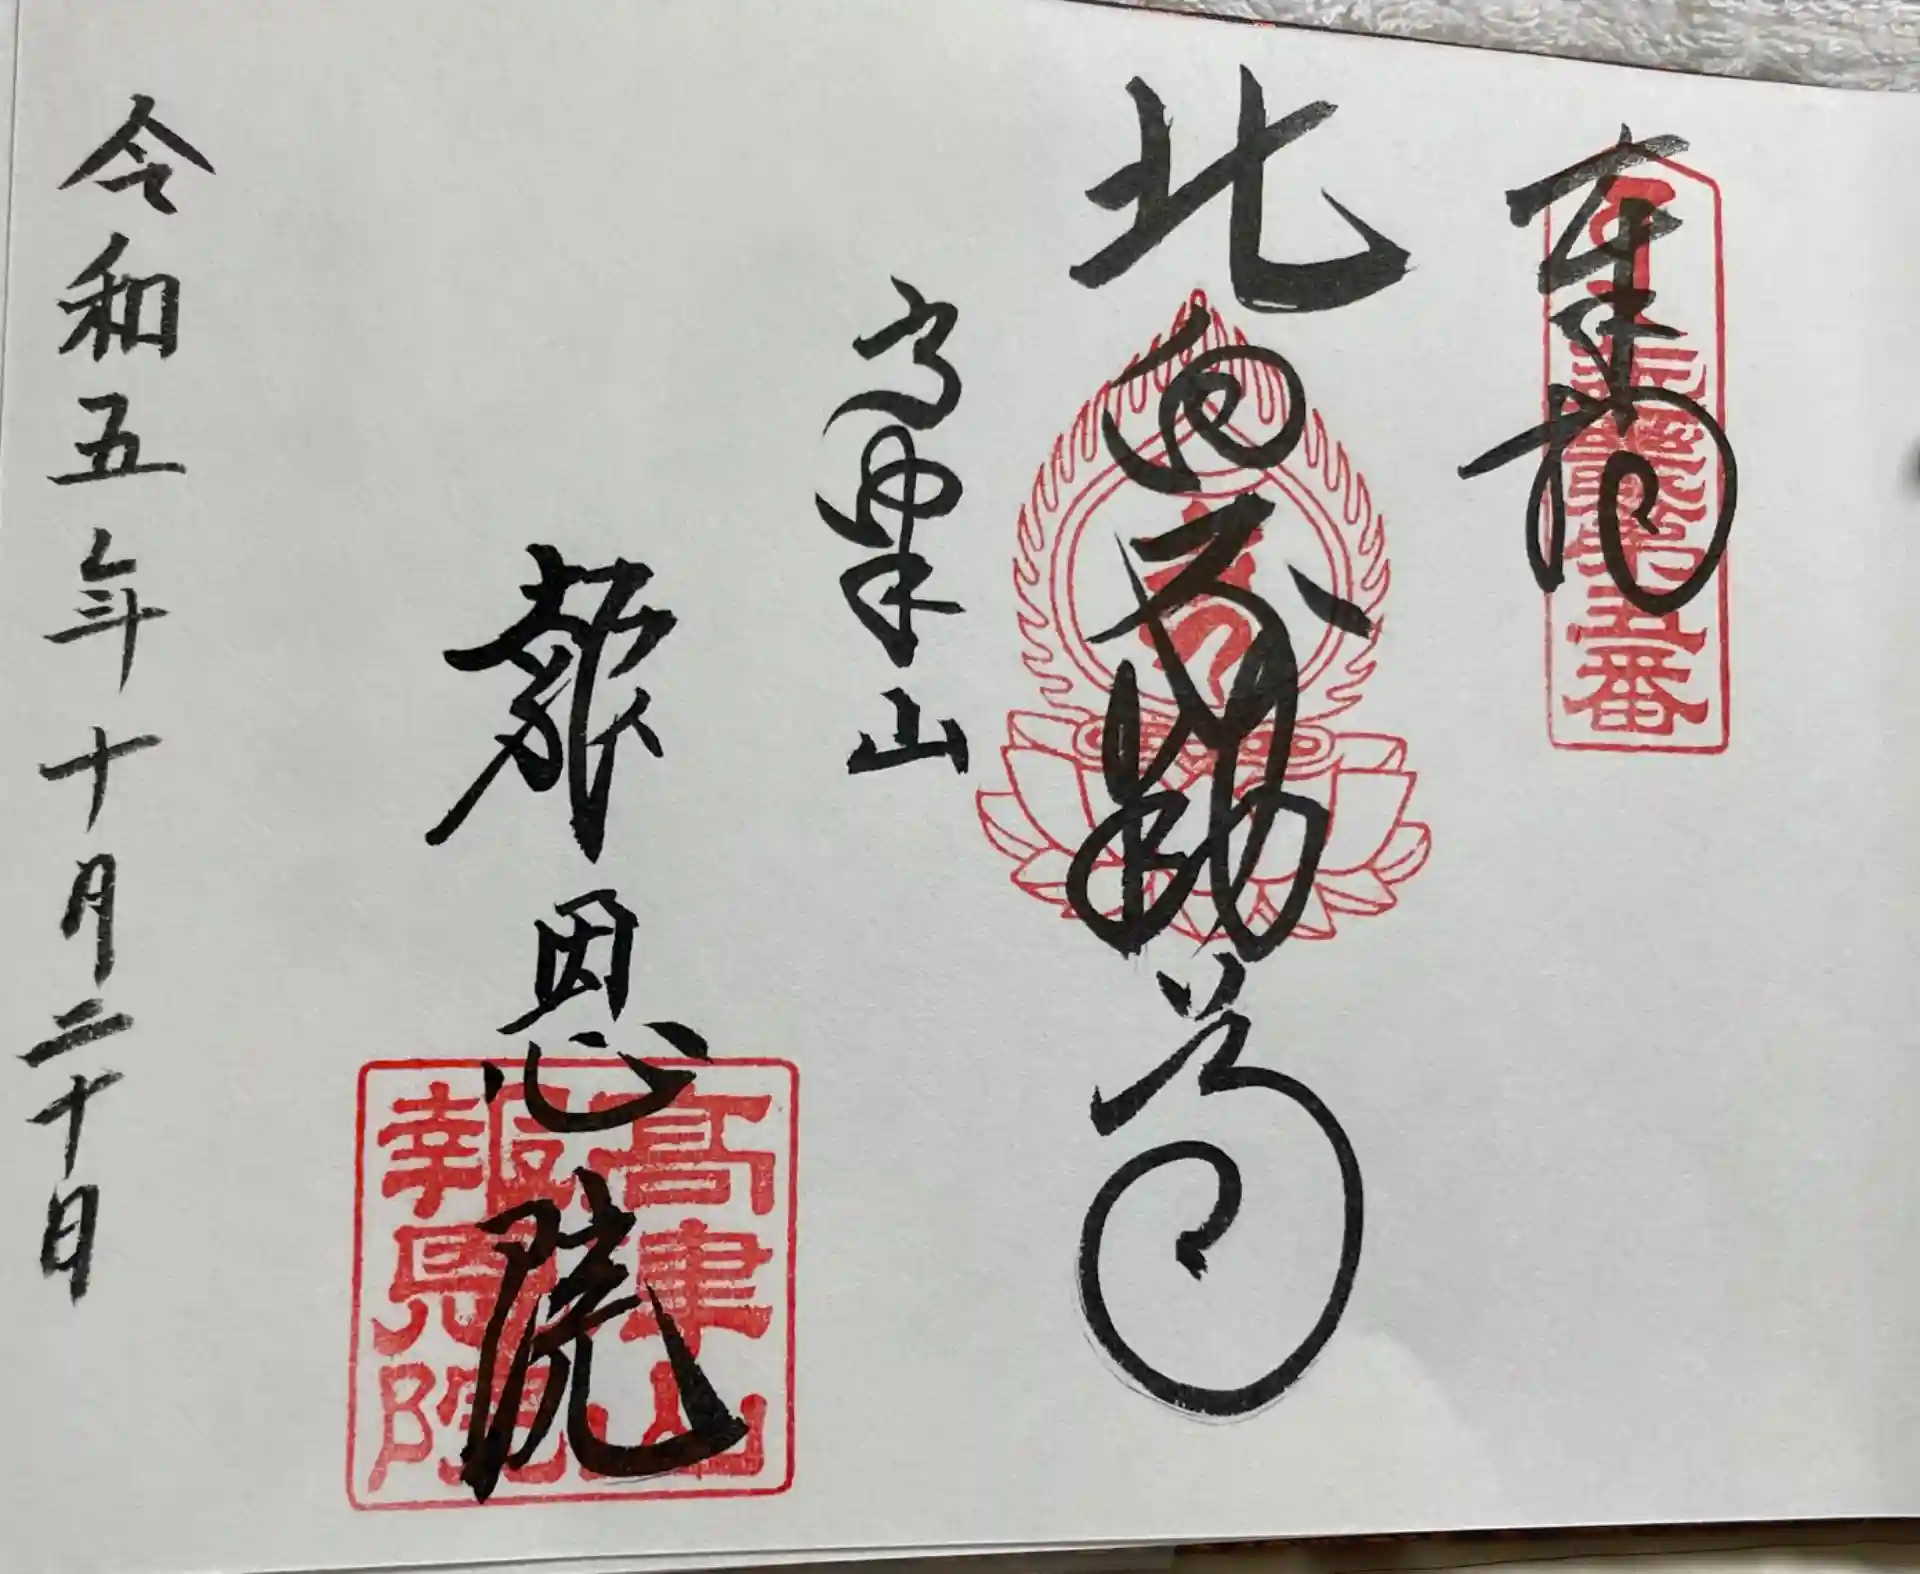 奉拝
北向不動尊
高津山
報恩院
令和五年十月二十日
第五番
高津山
報恩院